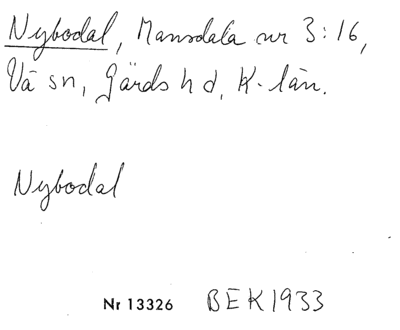 Nybodal, Mansdala nr 3:16,
Vä sn, Gärds hd, K-län.
Nybodal
Nr 13326 BEK1933